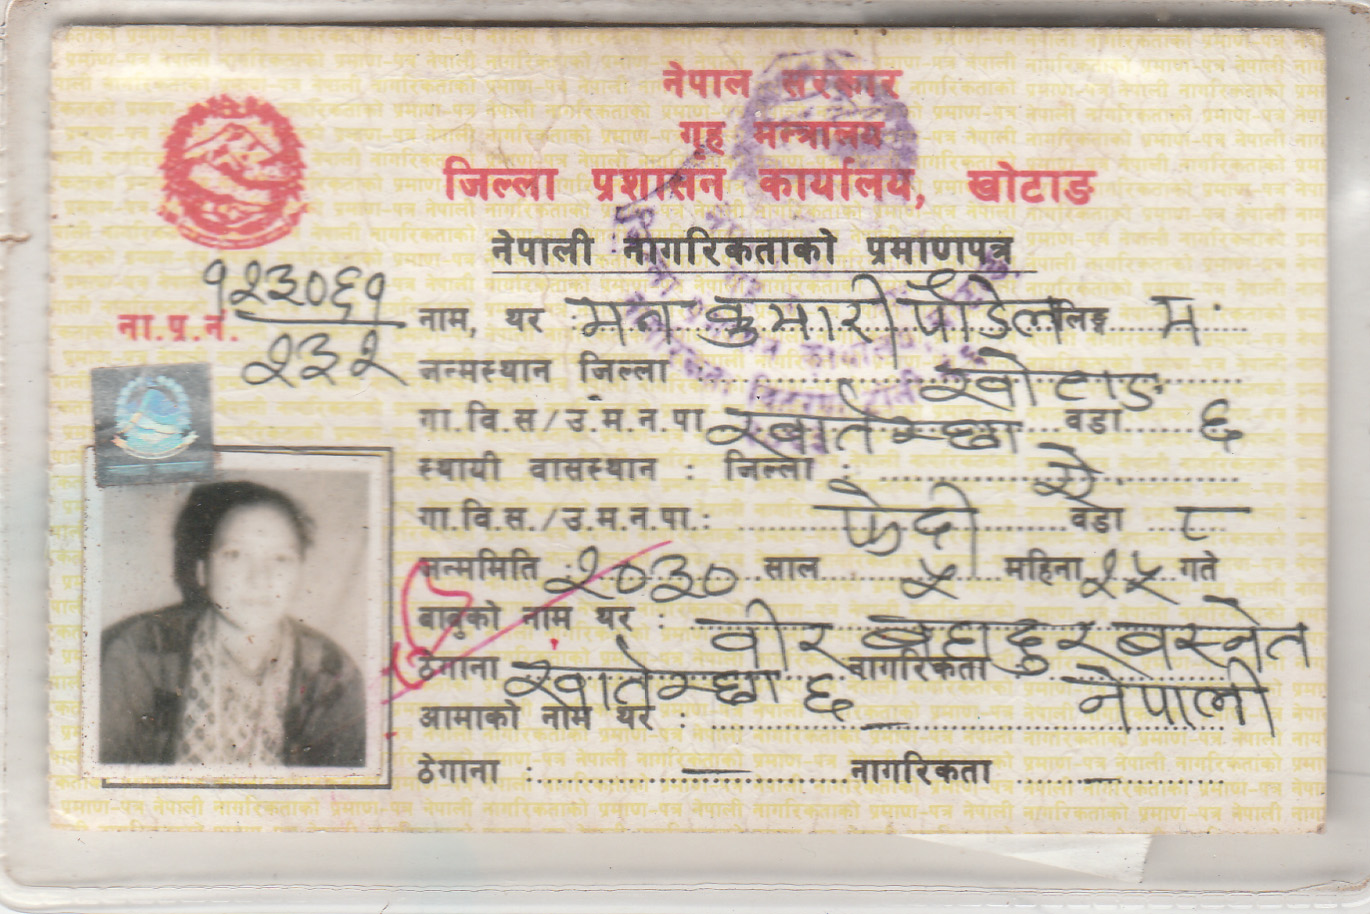 नेपाल सरकार
गृह मन्त्रालय
जिल्ला प्रशासन कार्यालय, खोटाङ
नेपाली नागरिकताको प्रमाणपत्र
ना.प्र.नं. १२३०६१/२३२
नाम, थर : मन कुमारी पौडेल लिङ्ग म.
जन्मस्थान जिल्ला खोटाङ
गा.वि.स/उ.म.न.पा खार्तम्छा वडा ६
स्थायी वासस्थान : जिल्ला : ऐ.
गा.वि.स./उ.म.न.पा.: फेदी वडा ८
जन्ममिति : २०३० साल ५ महिना २५ गते
बाबुको नाम थर : वीर बहादुर बस्नेत
ठेगाना खार्तम्छा ६ नागरिकता नेपाली
आमाको नाम थर : —
ठेगाना : — नागरिकता —